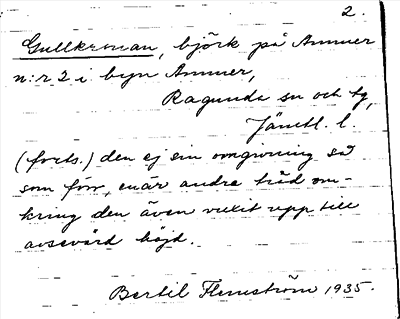 2.
Gullkronan, björk på Ammer
n:r 2 i byn Ammer,
Ragunda sn och tg,
Jämtl. l.
(forts.) den ej sin omgivning så
som förr, enär andra träd om-
kring den även vuxit upp till
avsevärd höjd.
Bertil Flemström 1935.